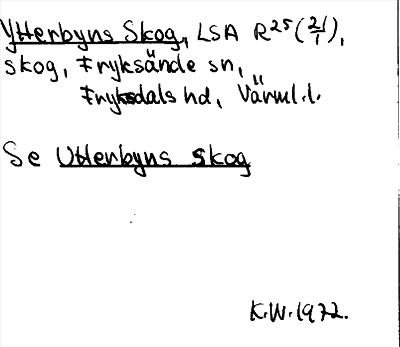 Ytterbyns Skog, LSA R25(21/1),
skog, Fryksände sn,
Fryksdals hd, Värml.l.
Se Utterbyns skog
K.W.1972.